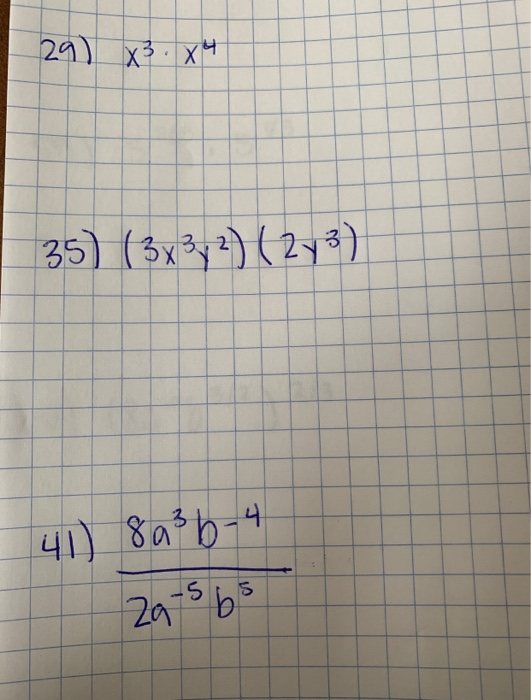 29) x³ · x⁴
35) (3x³y²)(2y³)
41) 8a³b⁻⁴
2a⁻⁵b⁵